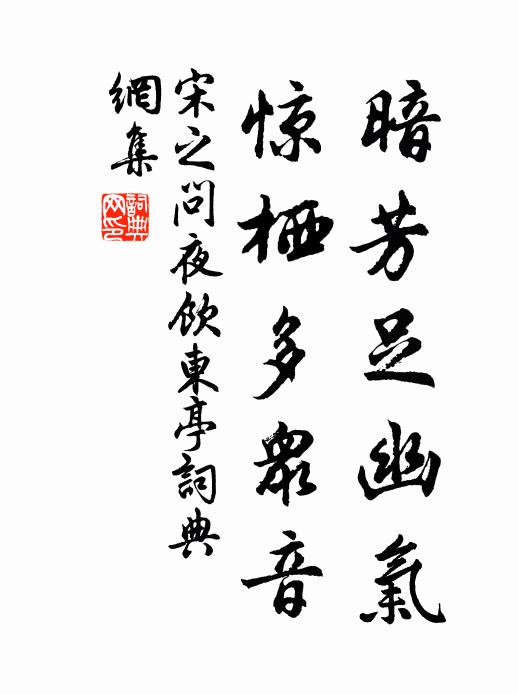 暗芳足幽氣
惊栖多眾音
宋之問夜飲東亭詞典
網集
詞典网印